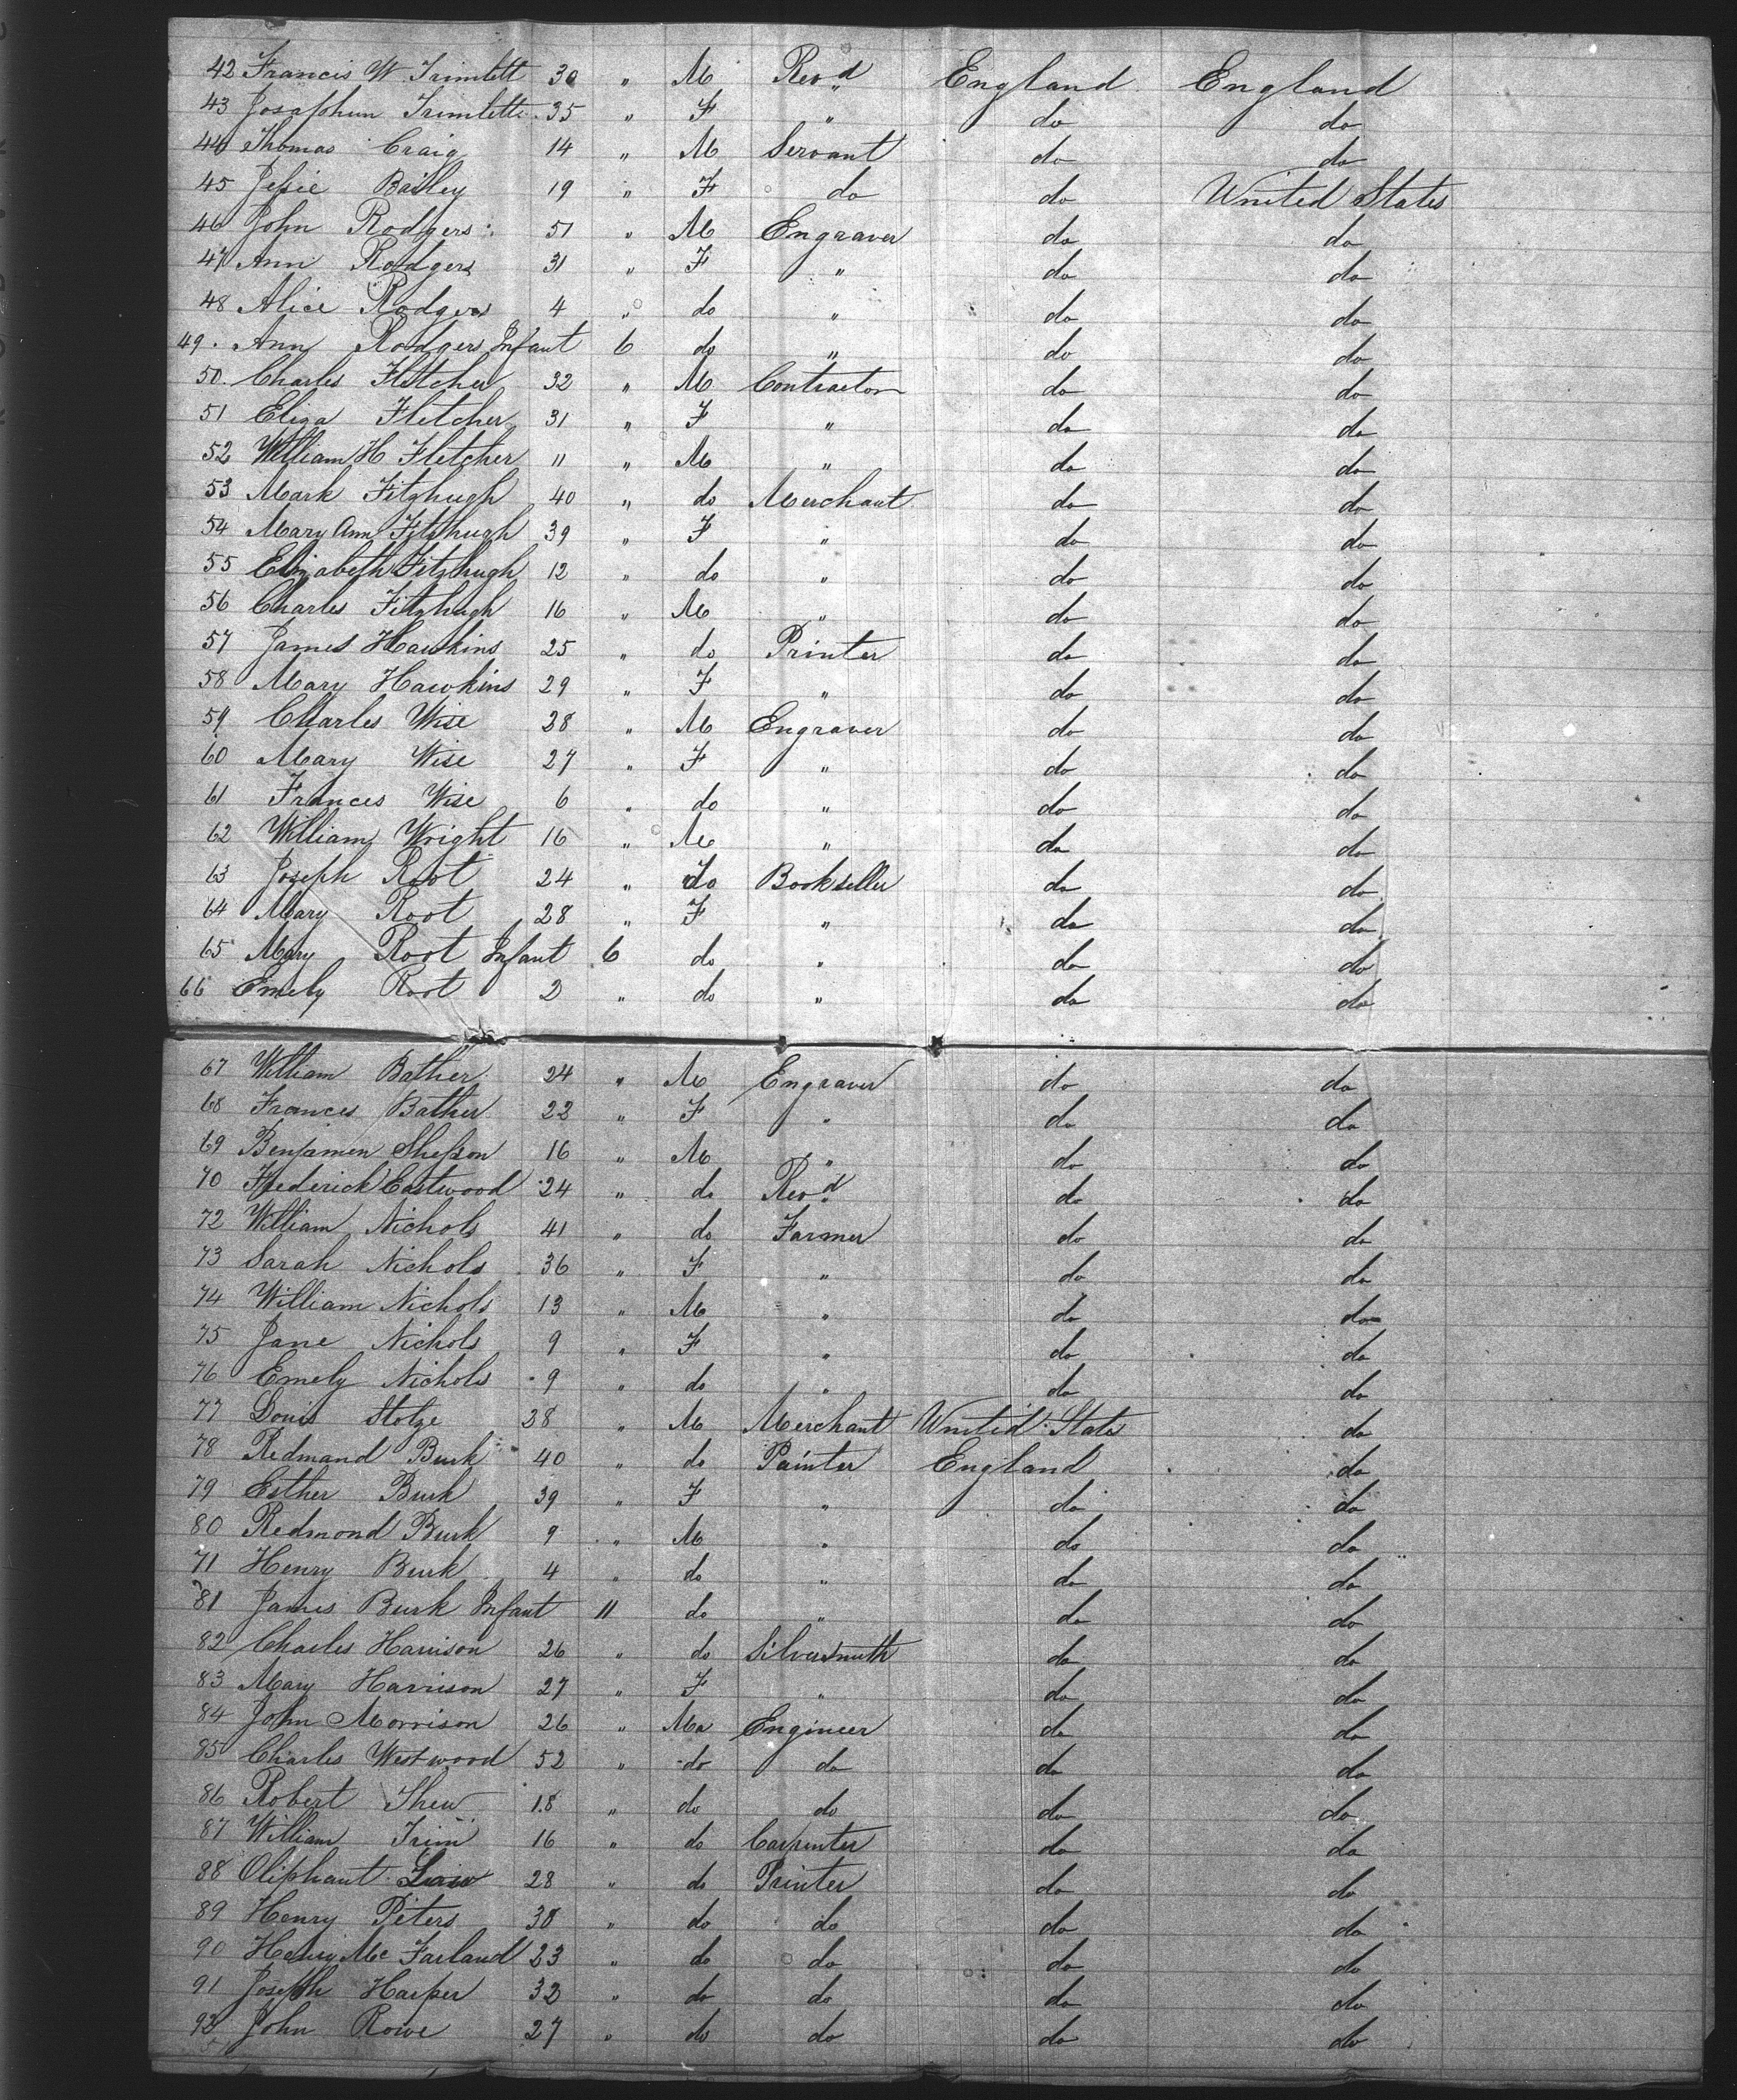 42 Francis W Trimlett 30 " M Rev.d England England
43 Josephine Trimlett 35 " F " do do
44 Thomas Craig 14 " M Servant do do
45 Jessie Bailey 19 " F do do United States
46 John Rodgers 51 " M Engraver do do
47 Ann Rodgers 31 " F " do do
48 Alice Rodgers 4 " do " do do
49. Ann Rodgers Infant 6 do " do do
50. Charles Fletcher 32 " M Contractor do do
51 Eliza Fletcher 31 " F " do do
52 William H Fletcher 11 " M " do do
53 Mark Fitzhugh 40 " do Merchant do do
54 Mary Ann Fitzhugh 39 " F " do do
55 Elizabeth Fitzhugh 12 " do " do do
56 Charles Fitzhugh 16 " M " do do
57 James Hawkins 25 " do Printer do do
58 Mary Hawkins 29 " F " do do
59 Charles Wise 28 " M Engraver do do
60 Mary Wise 27 " F " do do
61 Frances Wise 6 " do " do do
62 William Wright 16 " M " do do
63 Joseph Root 24 " do Bookseller do do
64 Mary Root 28 " F " do do
65 Mary Root Infant 6 do " do do
66 Emely Root 2 " do " do do
67 William Bather 24 " M Engraver do do
68 Frances Bather 22 " F " do do
69 Benjamen 16 " M " do do
70 Frederick Eastwood 24 " do Rev.d do do
72 William Nichols 41 " do Farmer do do
73 Sarah Nichols 36 " F " do do
74 William Nichols 13 " M " do do
75 Jane Nichols 9 " F " do do
76 Emely Nichols 9 " do " do do
77 Louis Stolze 38 " M Merchant United States do
78 Redmand Burk 40 " do Painter England do
79 Esther Burk 39 " F " do do
80 Redmond Burk 9 " M " do do
71 Henry Burk 4 " do " do do
81 James Burk Infant 11 do " do do
82 Charles Harrison 26 " do Silversmith do do
83 Mary Harrison 27 " F " do do
84 John Morrison 26 " Ma Engineer do do
85 Charles Westwood 52 " do do do do
86 Robert Shew 18 " do do do do
87 William Trim 16 " do Carpenter do do
88 Oliphant 28 " do Printer do do
89 Henry Peters 38 " do do do do
90 Henry Mc Farland 23 " do do do do
91 Joseph Harper 32 " do do do do
92 John Rowe 27 " do do do do